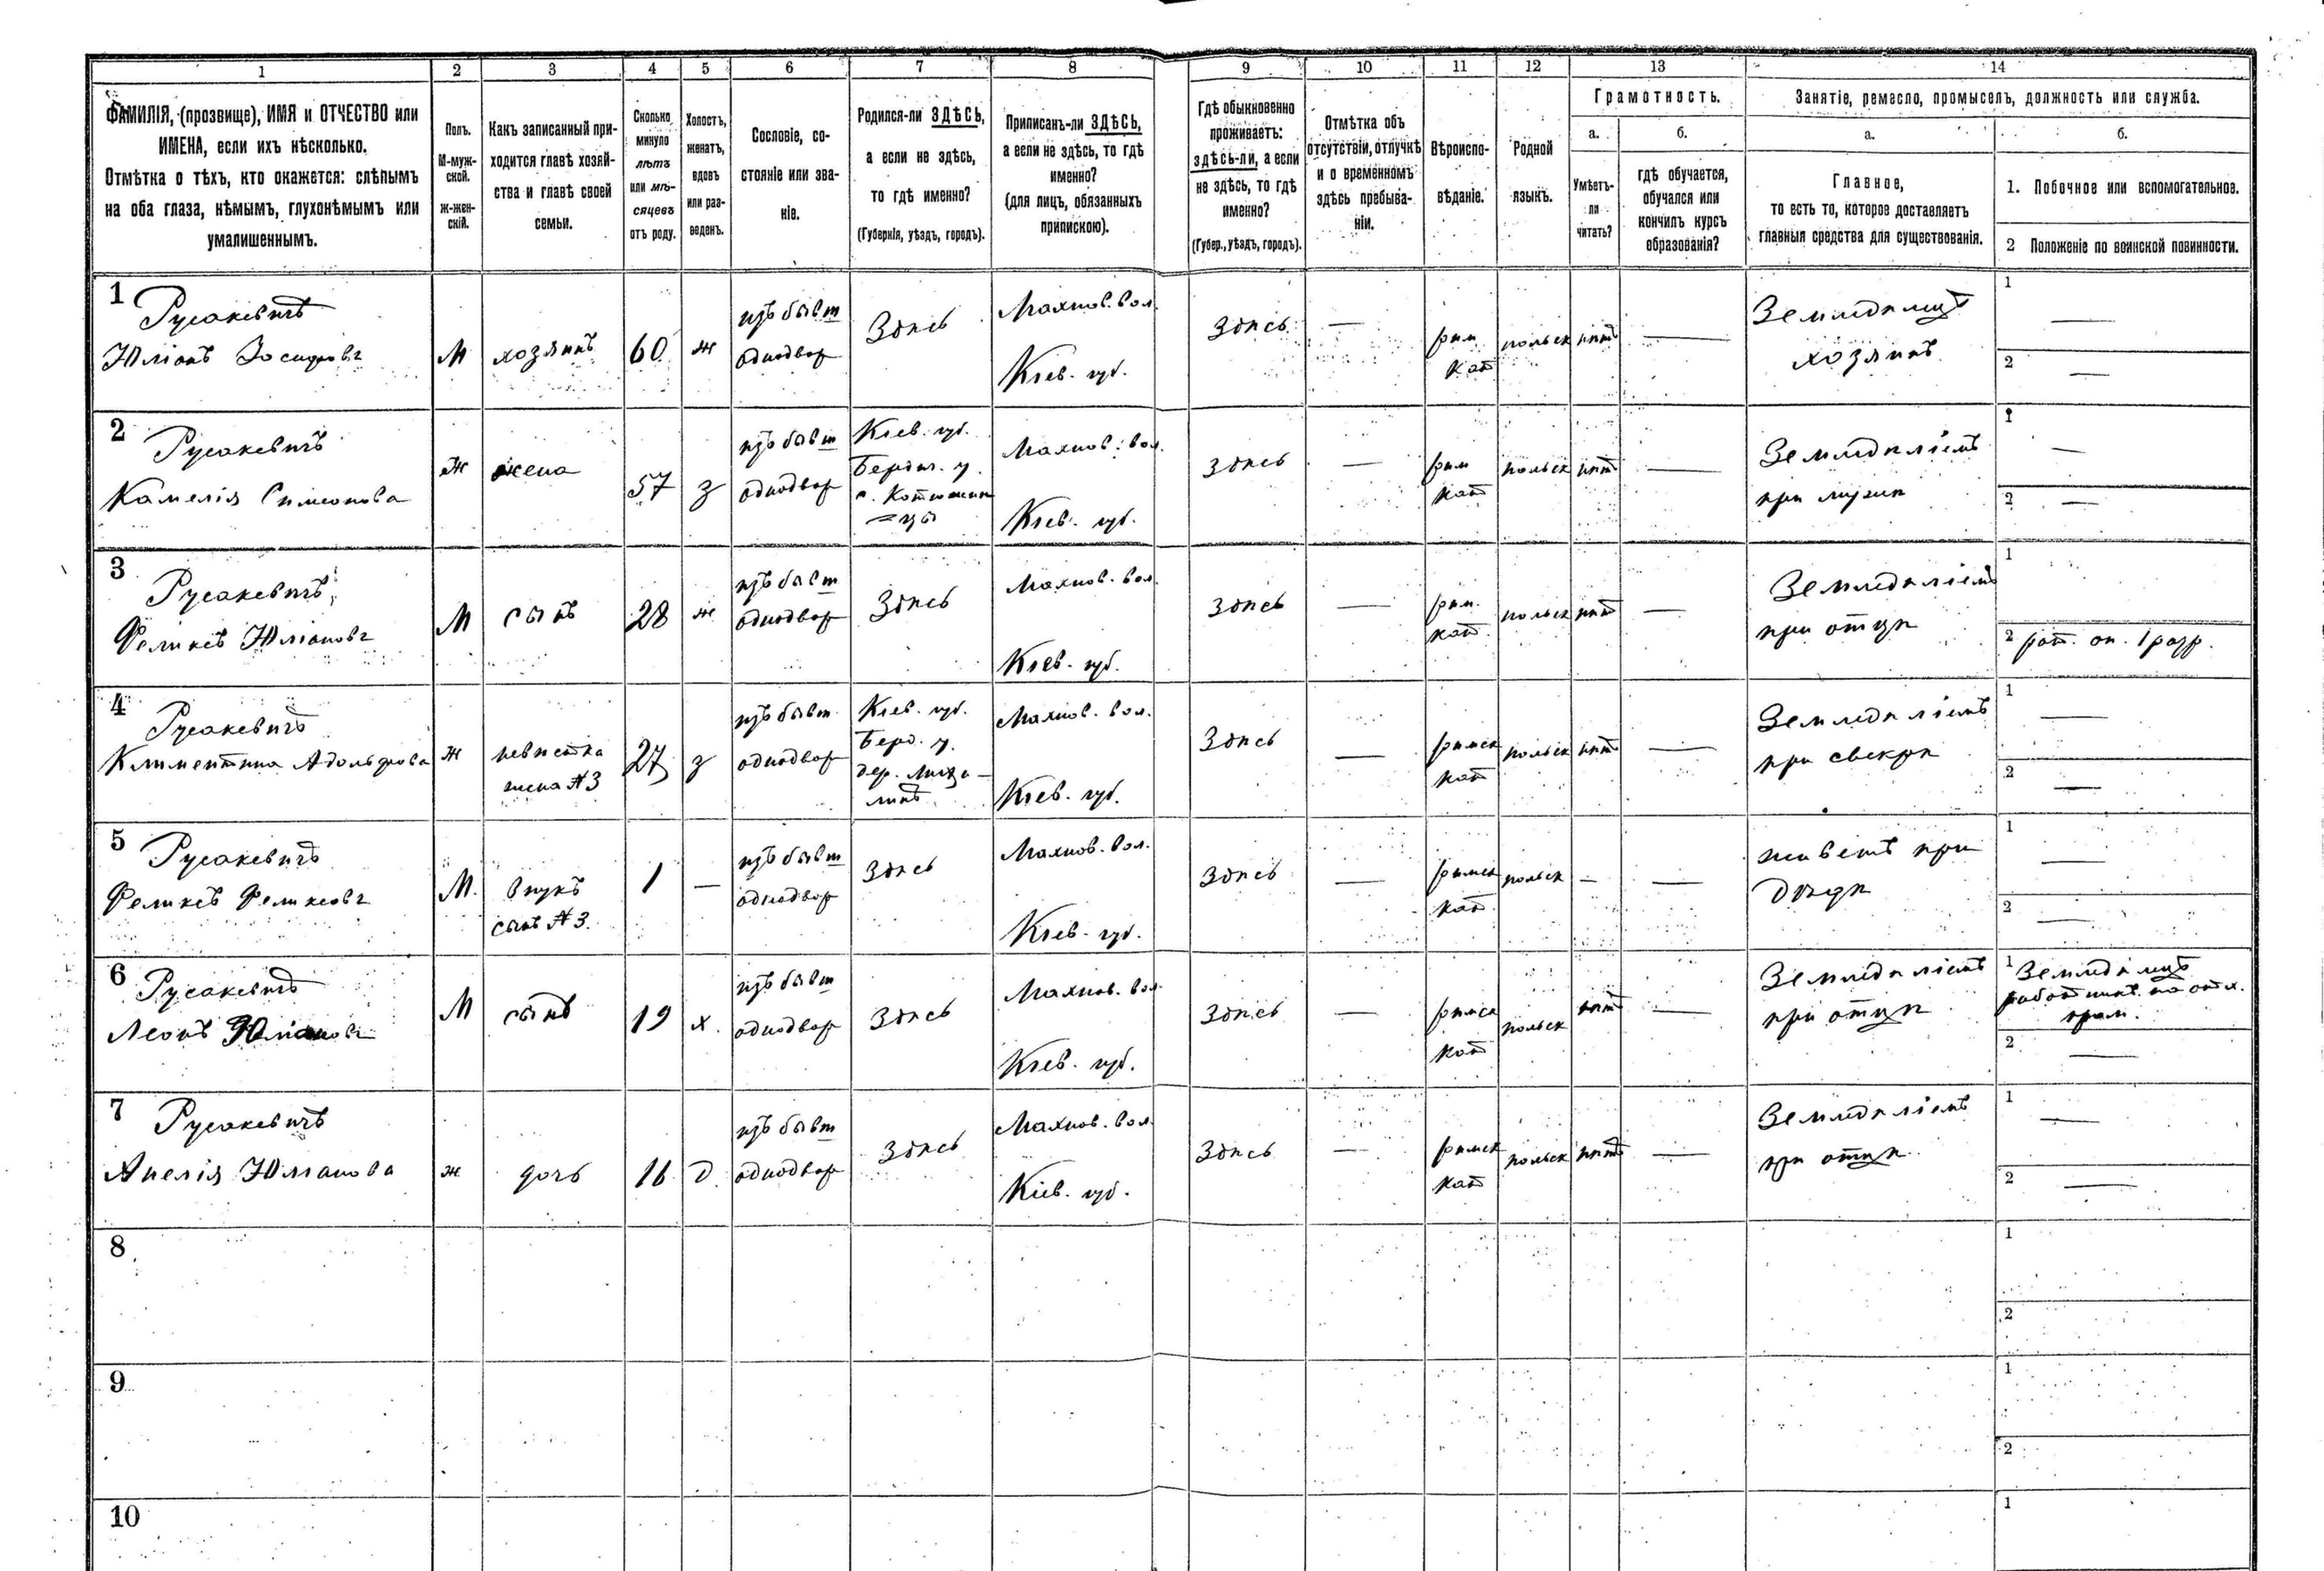 1 2 3 4 5 6 7 8 9 10 11 12 13 14
ФАМИЛІЯ, (прозвище), ИМЯ и ОТЧЕСТВО или
ИМЕНА, если ихъ нѣсколько.
Отмѣтка о тѣхъ, кто окажется: слѣпымъ
на оба глаза, нѣмымъ, глухонѣмымъ или
умалишеннымъ.
Полъ.
М-муж-
ской.
Ж-жен-
скій.
Какъ записанный при-
ходится главѣ хозяй-
ства и главѣ своей
семьи.
Сколько
минуло
лѣтъ
или мѣ-
сяцевъ
отъ роду.
Холостъ,
женатъ,
вдовъ
или раз-
веденъ.
Сословіе, со-
стояніе или зва-
ніе.
Родился-ли ЗДѢСЬ,
а если не здѣсь,
то гдѣ именно?
(Губернія, уѣздъ, городъ).
Приписанъ-ли ЗДѢСЬ,
а если не здѣсь, то гдѣ
именно?
(для лицъ, обязанныхъ
припискою).
Гдѣ обыкновенно
проживаетъ:
здѣсь-ли, а если
не здѣсь, то гдѣ
именно?
(Губер., уѣздъ, городъ).
Отмѣтка объ
отсутствіи, отлучкѣ
и о временномъ
здѣсь пребыва-
ніи.
Вѣроиспо-
вѣданіе.
Родной
языкъ.
Грамотность.
а.
Умѣетъ-
ли
читать?
б.
гдѣ обучается,
обучался или
кончилъ курсъ
образованія?
Занятіе, ремесло, промыселъ, должность или служба.
а.
Главное,
то есть то, которое доставляетъ
главныя средства для существованія.
б.
1. Побочное или вспомогательное.
2 Положеніе по воинской повинности.
1
Русакевичъ
Юліанъ Зосимовъ
М
хозяинъ
60
ж
изъ бывш
однодвор
Здѣсь
Махнов. вол.
Кіев. губ.
Здѣсь
—
рим
кат
польск
нѣтъ
—
Земледѣлецъ
хозяинъ
1 —
2 —
2
Русакевичъ
Камелія Симеонова
Ж
жена
57
з
изъ бывш
однодвор
Кіев. губ.
Бердич. у.
с. Котюжин
=цы
Махнов. вол.
Кіев. губ.
здѣсь
—
рим
кат
польск
нѣтъ
—
Земледѣліемъ
при мужѣ
1 —
2 —
3
Русакевичъ
Феликсъ Юліановъ
М
сынъ
28
ж
изъ бывш
однодвор
Здѣсь
Махнов. вол.
Кіев. губ.
Здѣсь
—
рим.
кат.
польск
нѣтъ
—
Земледѣліемъ
при отцѣ
1
2 рат. оп. 1 разр.
4
Русакевичъ
Климентина Адольфова
ж
невѣстка
жена №3
27
з
изъ бывш
однодвор
Кіев. губ.
Берд. у.
дер.
Махнов. вол.
Кіев. губ.
Здѣсь
—
римск
кат
польск
нѣтъ
—
Земледѣліемъ
при свекрѣ
1 —
2 —
5
Русакевичъ
Феликсъ Феликсовъ
М.
внукъ
сынъ №3.
1
—
изъ бывш
однодвор
Здѣсь
Махнов. вол.
Кіев. губ.
Здѣсь
—
римск
кат
польск
—
—
живетъ при
дѣдѣ
1 —
2 —
6
Русакевичъ
Леонъ Юліановъ
М
сынъ
19
х.
изъ бывш
однодвор
Здѣсь
Махнов. вол.
Кіев. губ.
Здѣсь
—
римск
кат
польск
нѣтъ
—
Земледѣліемъ
при отцѣ
1 Земледѣлецъ
работникъ на отх.
пром.
2 —
7
Русакевичъ
Анелія Юліанова
ж
дочь
16
д.
изъ бывш
однодвор
Здѣсь
Махнов. вол.
Кіев. губ.
Здѣсь
—
римск
кат
польск
нѣтъ
—
Земледѣліемъ
при отцѣ.
1 —
2 —
8
1
2
9
1
2
10
1